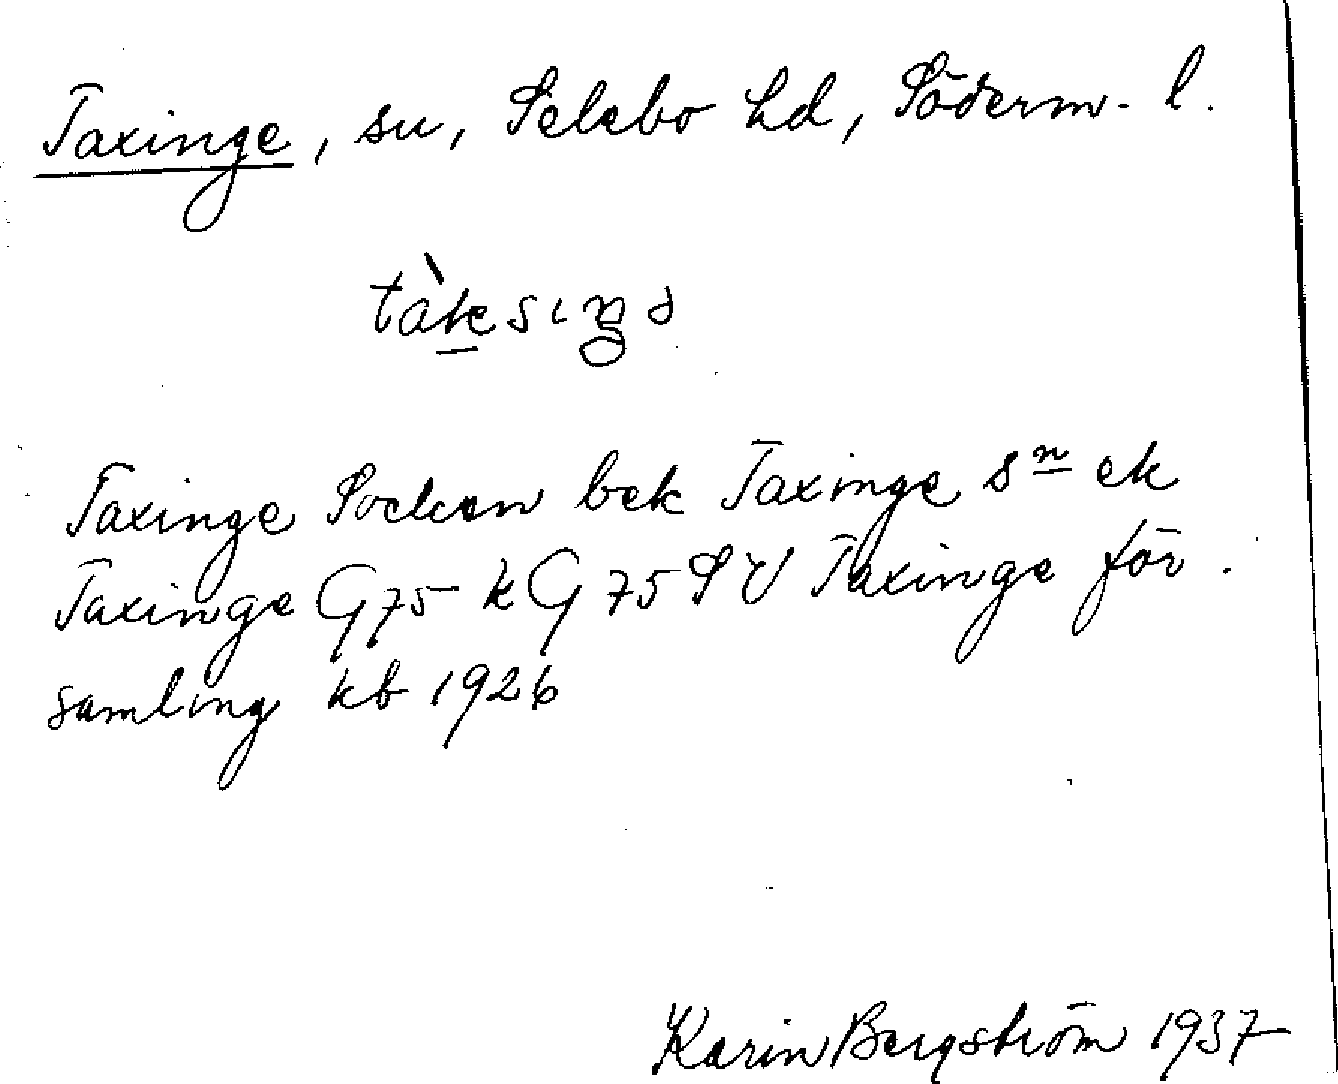 Taxinge, sn, Selebo hd, Söderm. l.
tàksiŋə
Taxinge Socken bek Taxinge sn ek
Taxinge G75 k G75SV Taxinge för.
samling kb 1926
Karin Bergström 1937